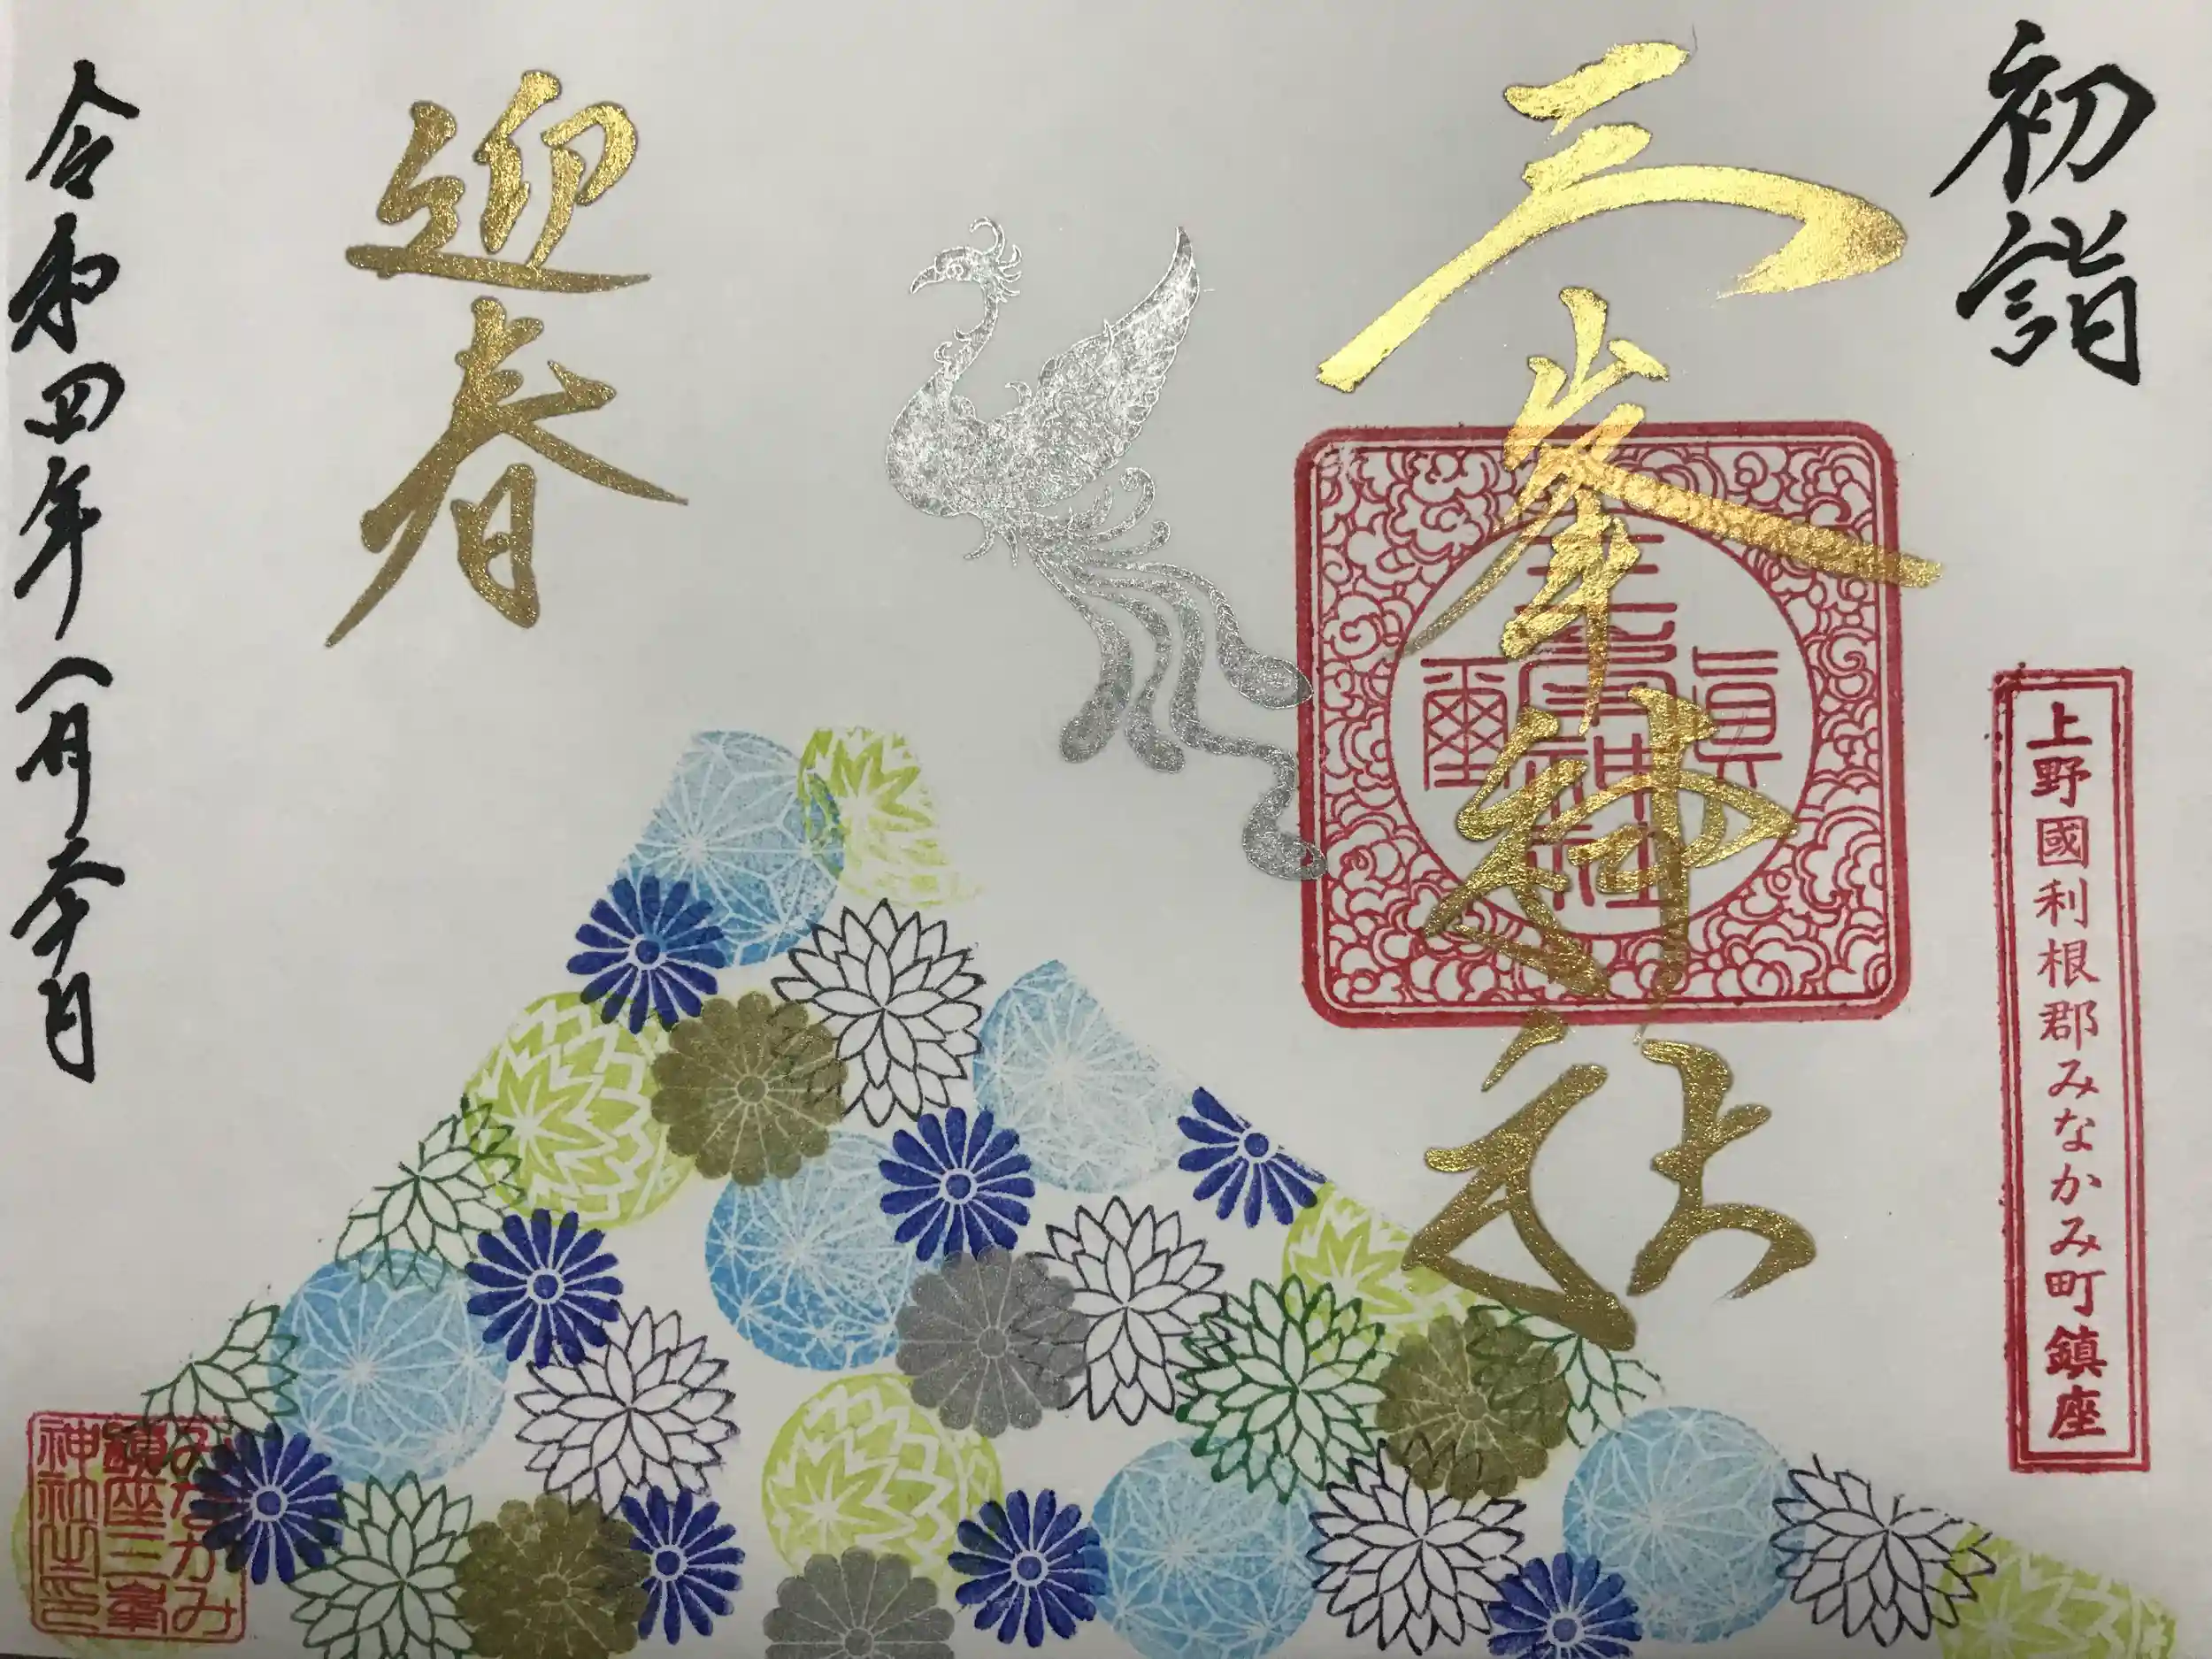 初詣
上野國利根郡みなかみ町鎮座
三峯神社
三峯神社
眞
璽
迎春
令和四年
みなかみ
鎮座三峯
神社之印